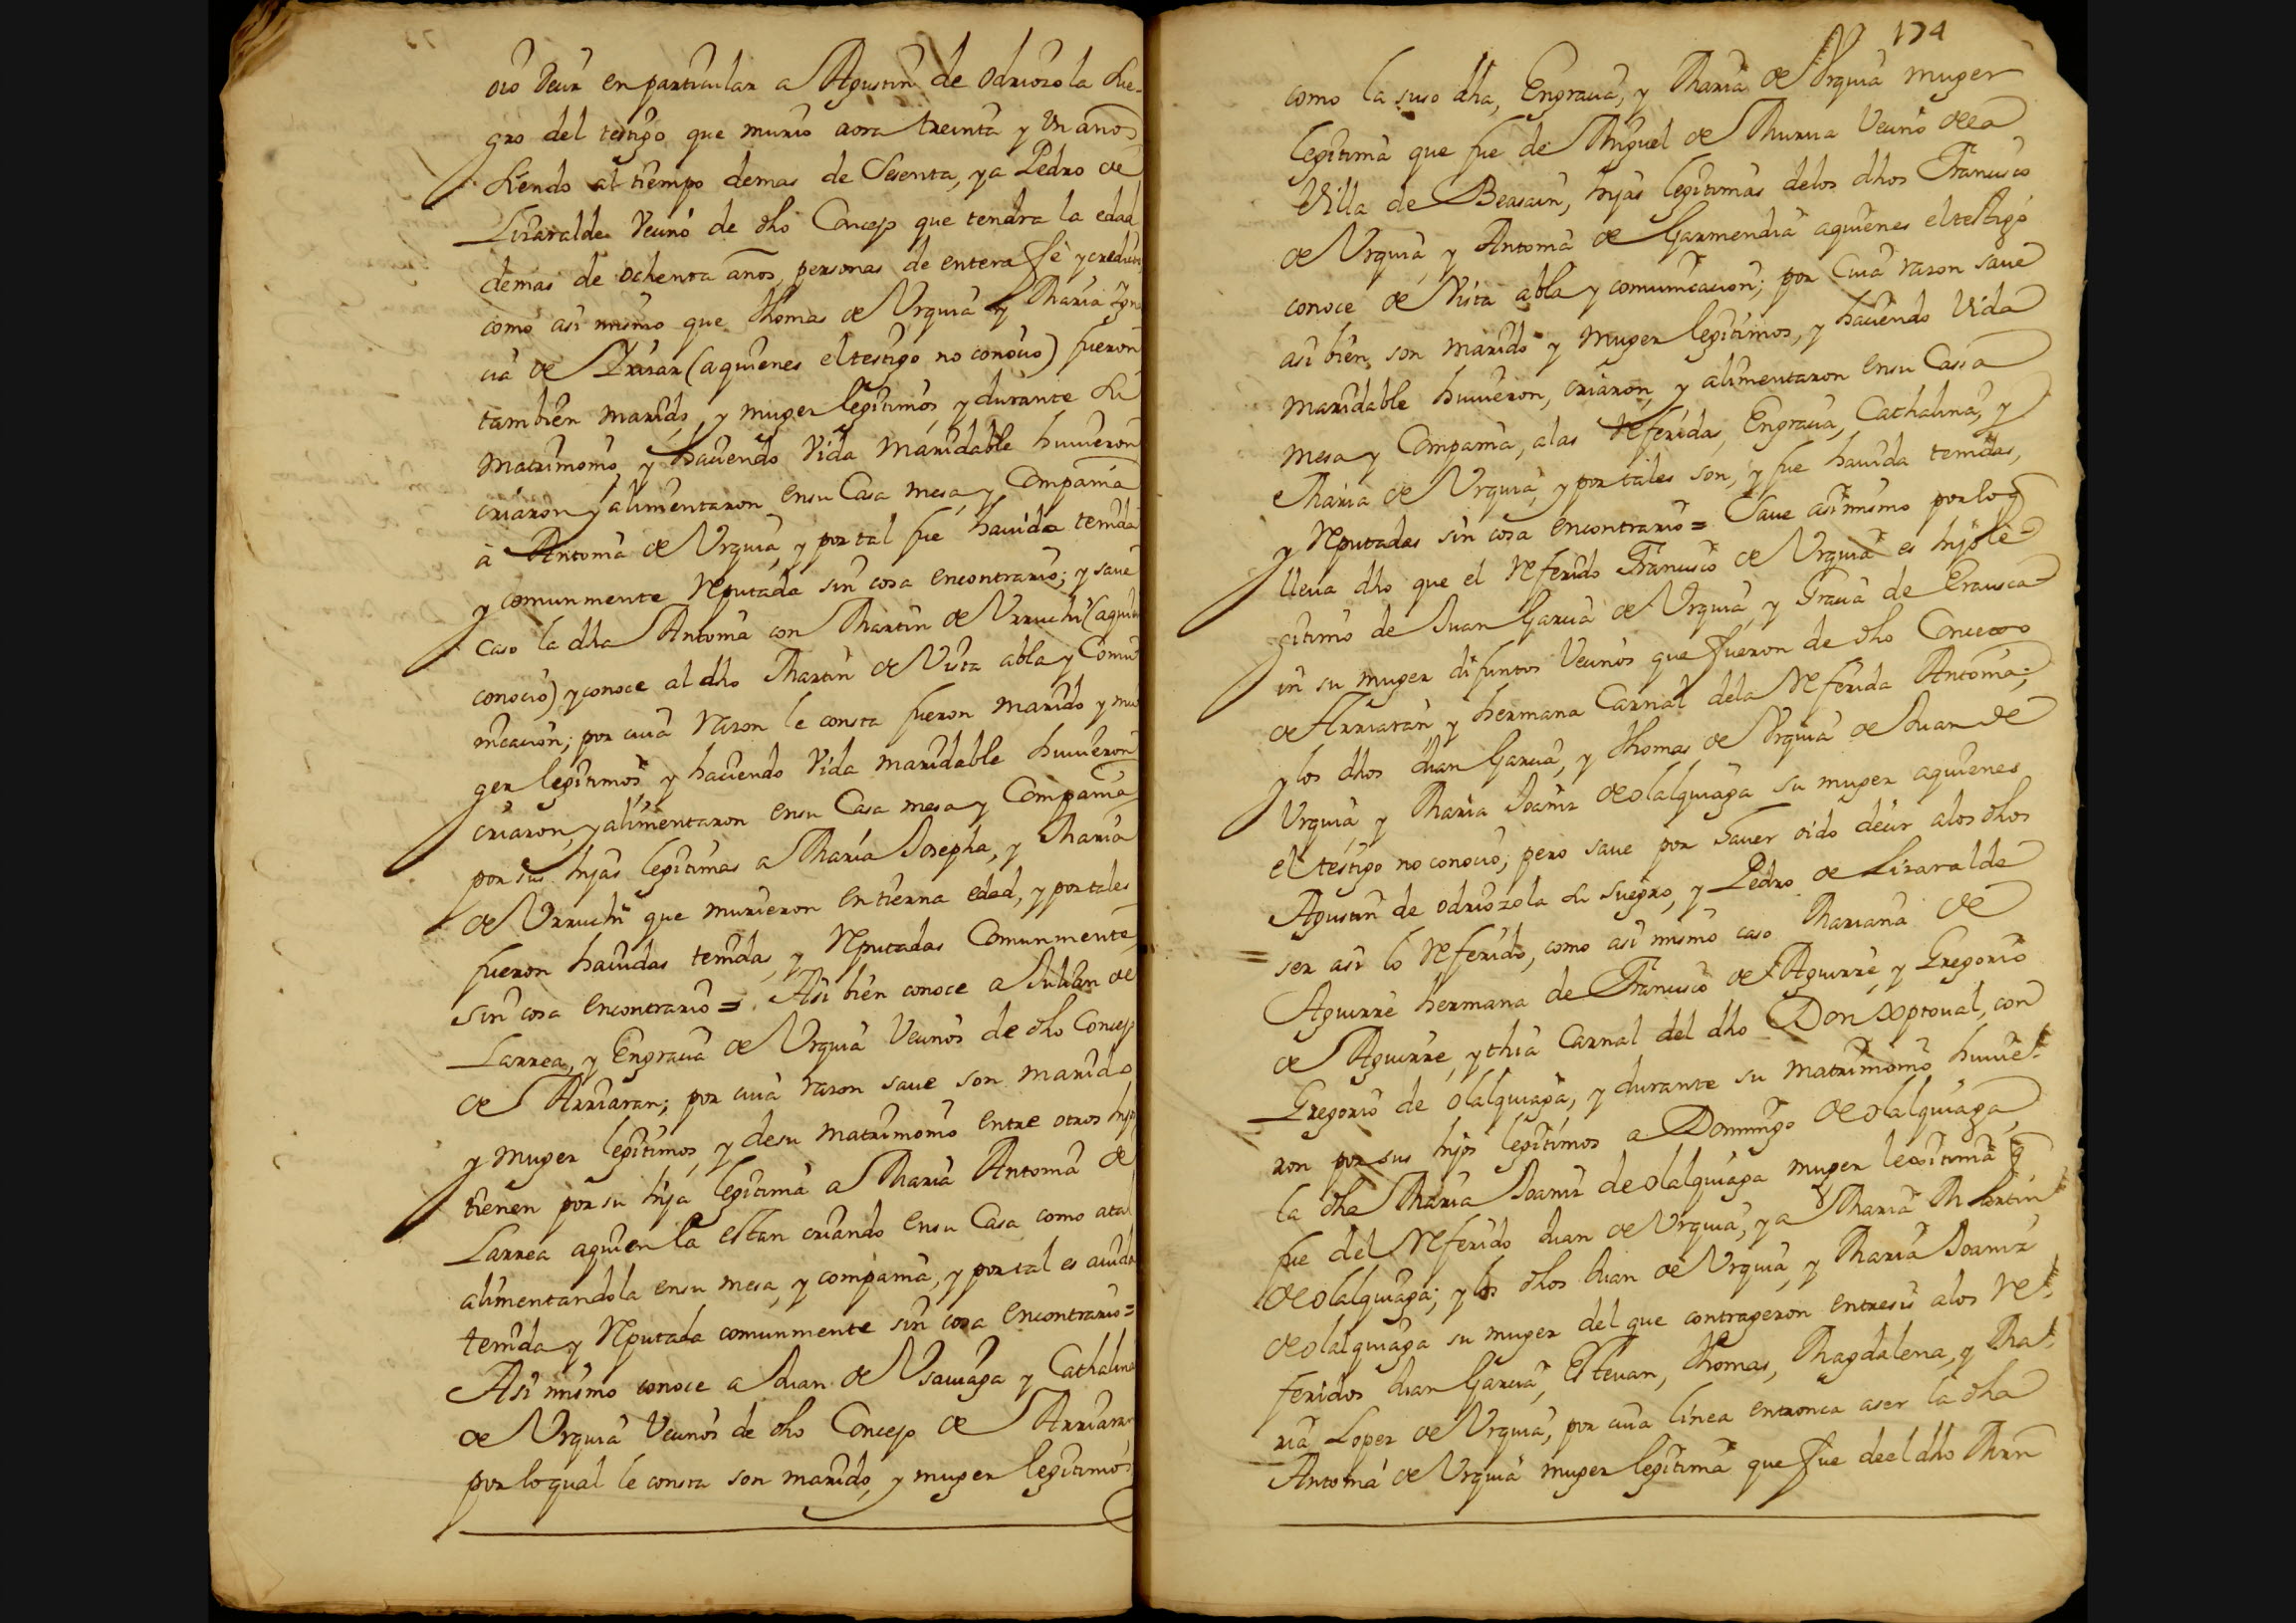 oio decir en particular a Agustin de Odriozola sue-
gro del testigo que murio aora treinta y un años
siendo al tiempo demas de Sesenta, y a Pedro de
Lizaralde Vecino de dho Concejo que tendra la edad
demas de ochenta años, personas de entera fè y credito
como asi mismo que Thomas de Vrquia y Maria Igna
cia de (aquienes el testigo no conocio) fueron
tambien marido, y muger legitimos, y durante su
matrimonio, y haciendo Vida maridable huuieron
criaron y alimentaron ensu Casa mesa, y Compañia
à Antonia de Vrquia, y por tal fue hauida tenida
y comunmente Reputada sin cosa encontrario; y saue
caso la dha Antonia con Martin de Vrruchi (aquien
conocio) y conoce al dho Martin de Vista abla y Comu
nicacion; por cuia razon le consta fueron marido y mu
ger legitimos, y haciendo Vida maridable huuieron
criaron, y alimentaron ensu Casa mesa y Compañia
por sus hijas legitimas a Maria Josepha, y Maria
de Vrruchi que murieron en tierna edad, y por tales
fueron hauidas tenidas, y Reputadas Comunmente
sin cosa encontrario = Asi bien conoce a Julian de
Larrea, y Engracia de Vrquia Vecinos de dho Concejo
de Arriaran; por cuia razon saue son marido
y muger legitimos, y desu matrimonio entre otros hijos
tienen por su hija legitima a Maria Antonia de
Larrea aquien la estan criando ensu Casa como atal
alimentandola ensu mesa, y compañia, y por tal es auida
tenida y Reputada comunmente sin cosa encontrario =
Asi mismo conoce a Juan de Vsauiaga y Cathalina
de Vrquia Vecinos de dho Concejo de Arriaran
por lo qual le consta son marido, y muger legitimos
174
como la suso dha, Engracia, y Maria de Vrquia muger
legitima que fue de Miguel de Murua Vecino dela
Villa de Beasain, hijas legitimas delos dhos Francisco
de Vrquia, y Antonia de Garmendia aquienes el testigo
conoce de Vista abla y comunicacion; por Cuia razon saue
asi bien, son marido y muger legitimos, y haciendo Vida
maridable huuieron, criaron, y alimentaron ensu Cassa
mesa y Compañia, alas Referidas, Engracia, Cathalina, y
Maria de Vrquia, y por tales son, y fue hauida tenidas,
y Reputadas sin cosa encontrario = Saue asimismo por lo q
lleua dho que el Referido Francisco de Vrquia es hijo le-
gitimo de Juan Garcia de Vrquia, y Gracia de Erausca-
in su muger difuntos Vecinos que fueron de dho Concexo
de Arriaran y hermana Carnal dela Referida Antonia;
y los dhos Juan Garcia, y Thomas de Vrquia de Juan de
Vrquia y Maria Joaniz de Olalquiaga su muger aquienes
el testigo no conocio; pero saue por hauer oido decir alos dhos
Agustin de Odriozola su suegro, y Pedro de Lizaralde
= ser asi lo Referido, como asi mismo caso Mariana de
Aguirre hermana de Francisco de Aguirre, y Gregorio
de Aguirre, y thia Carnal del dho Don Xptoual, con
Gregorio de Olalquiaga, y durante su matrimonio huuie-
ron por sus hijos legitimos a Domingo de Olalquiaga,
la dha Maria Joaniz de Olalquiaga muger legitima q
fue del Referido Juan de Vrquia, y a Maria Martin
de Olalquiaga; y los dhos Juan de Vrquia, y Maria Joaniz
de Olalquiaga su muger del que contrageron entresi alos Re-
feridos Juan Garcia, Esteuan, Thomas, Magdalena, y Ma-
ria Lopez de Vrquia, por cuia linea entronca aser la dha
Antonia de Vrquia muger legitima que fue deel dho Mrn